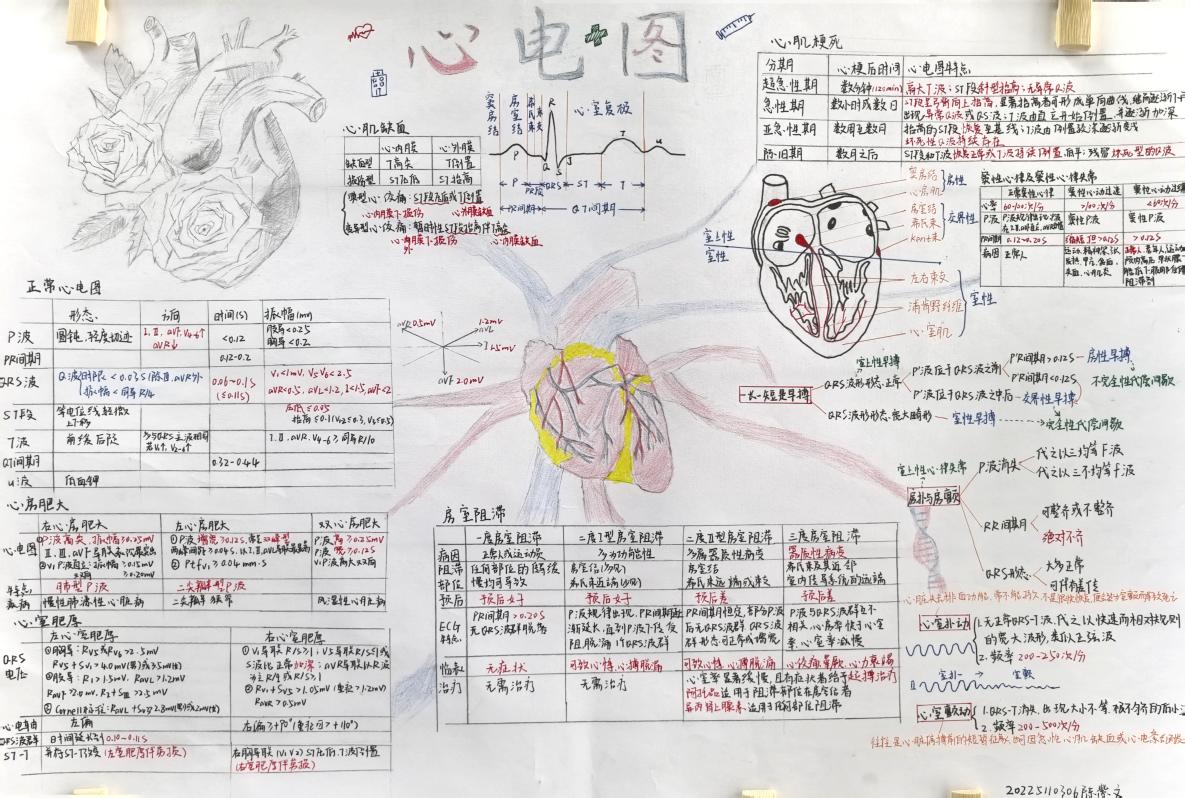 心电图
心肌缺血
心内膜 心外膜
缺血型 T高尖 T倒置
损伤型 ST压低 ST抬高
典型心绞痛：ST段压低或T倒置
心内膜下损伤 心外膜缺血
变异型心绞痛：暂时性ST段抬高伴T高尖
窦房结 房室结
心室复极
P R Q S J T u
P PR段 QRS ST T
PR间期 QT间期
心肌梗死
分期 心梗后时间 心电图特点
超急性期 数分钟 高大T波；ST段斜型抬高；无异常Q波
急性期 数小时或数日 ST段呈弓背向上抬高，显著抬高者可形成单向曲线
出现异常Q波或QS波；T波由直立开始倒置，并逐渐加深
亚急性期 数周至数月 抬高的ST段恢复至基线；T波由倒置较深逐渐变浅
坏死性Q波持续存在
陈旧期 数月之后 ST段和T波恢复正常或T波持续倒置、低平；残留坏死型的Q波
窦房结
心房肌
房性
房室结
希氏束
Kent束
交界性
室上性
室性
左右束支
浦肯野纤维
心室肌
室性
窦性心律及窦性心律失常
正常窦性心律 窦性心动过速 窦性心动过缓
心率 60-100次/分 >100次/分 <60次/分
P波 窦性P波 窦性P波
PR间期 0.12~0.20s >0.12s
病因 正常人
正常心电图
形态 方向 时间(s) 振幅(mv)
P波 圆钝，轻度切迹 I、II、aVF、V4-6↑ aVR↓ <0.12 肢导<0.25 胸导<0.2
PR间期 0.12-0.2
QRS波 Q波时限<0.03s(除III、aVR外 振幅<同导R/4 0.06~0.1s (≤0.11s) V1<1mV，V5V6<2.5 aVR<0.5，aVL<1.2，I<1.5，aVF<2
ST段 等电位线轻微上下移 压低≤0.05
T波 前缓后陡 I、II、aVR、V4-6≥同导R/10
QT间期 0.32-0.44
u波 低而钝
aVR 0.5mV
1.2mV
aVL
I 1.5mV
aVF 2.0mV
一长一短是早搏
QRS波形形态正常
室上性早搏
P波位于QRS波之前
PR间期>0.12s
房性早搏
PR间期<0.12s
P波位于QRS波之中后
交界性早搏
不完全性代偿间歇
QRS波形形态宽大畸形
室性早搏
完全性代偿间歇
室上性心律失常
房扑与房颤
P波消失
代之以三均等F波
代之以三不均等f波
RR间期
可整齐或不整齐
绝对不齐
QRS形态
大多正常
可伴有差传
心房肥大
右心房肥大 左心房肥大 双心房肥大
心电图 ①P波高尖，振幅≥0.25mV ①P波增宽≥0.12s，常呈双峰型 P波高≥0.25mV
II、III、aVF导联表现最突出 两峰间距≥0.04s，以I、II、aVL导联最明显 P波宽≥0.12s
②V1P波直立：振幅≥0.15mV ②Ptfv1≥0.04mm·s V1P波高大双向
双向 ≥0.20mV
特点 肺型P波 二尖瓣型P波
疾病 慢性肺源性心脏病 二尖瓣狭窄 风湿性心脏病
心室肥厚
左心室肥厚 右心室肥厚
QRS电压
①胸导：RV5或RV6>2.5mV
RV5+SV1>4.0mV(男)或3.5mV(女)
②肢导：RI>1.5mV，RaVL>1.2mV
RaVF>2.0mV，RI+SIII>2.5mV
③Cornell标准：RaVL+SV3>2.8mV(男)或2mV(女)
①V1导联R/S≥1；V5导联R/S≤1或
S波比正常加深；aVR导联以R波
为主R/q或R/S≥1
②RV1+SV5>1.05mV(重症>1.2mV)
RaVR>0.5mV
心电轴 左偏 右偏≥+90°(重症可>+110°)
QRS波群 时间延长到0.10~0.11s
ST-T 并存ST-T改变(左室肥厚伴劳损) 右胸导联(V1 V2)ST压低、T波倒置
(右室肥厚伴劳损)
房室阻滞
一度房室阻滞 二度I型房室阻滞 二度II型房室阻滞 三度房室阻滞
病因 正常人或运动员 多为功能性 多属器质性病变 器质性病变
阻滞部位 任何部位的阻缓慢均可导致 房室结(多见) 希氏束近端(少见) 房室结 希氏束远端或束支 希氏束及其近邻 室内传导系统的远端
预后 预后好 预后好 预后差 预后差
ECG特点 PR间期>0.20s 无QRS波群脱落
P波规律出现，PR间期逐渐延长，直到P波下传受阻脱漏1个QRS波群
PR间期恒定，部分P波后无QRS波群 QRS波群形态可正常或增宽
P波与QRS波群互不相关，心房率快于心室率，心室率减慢
临表 无症状 可致心悸，心搏脱漏 可致心悸，心搏脱漏 心绞痛，晕厥，心力衰竭
治疗 无需治疗 无需治疗 心室率显著缓慢，且有症状者给予起搏治疗
阿托品适用于阻滞部位在房室结者
异丙肾上腺素：适用于任何部位阻滞
心室扑动
1.无正常QRS-T波，代之以快速而相对规则的宽大波形，类似正弦波
2.频率200-250次/分
室扑→ 室颤
心室颤动
1.QRS-T消失，出现大小不等、极不匀齐的
2.频率200-500次/分
20225110306